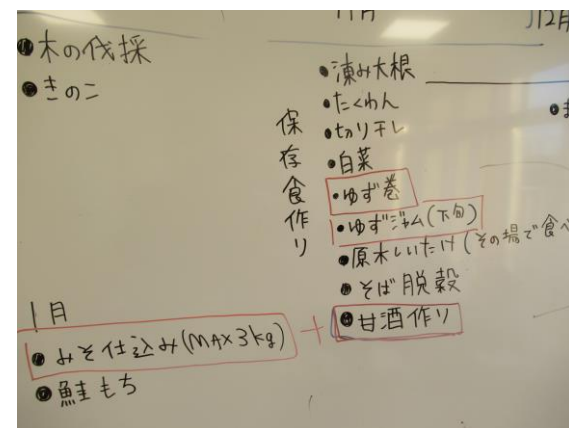 11月
12月
●木の伐採
●きのこ
保存食作り
●凍み大根
●たくわん
●切り干し
●白菜
●ゆず巻
●ゆずジャム(下旬)
●原木しいたけ(その場で食べ
●そば脱穀
●甘酒作り
1月
●みそ仕込み(MAX3kg)
+
●鮭もち